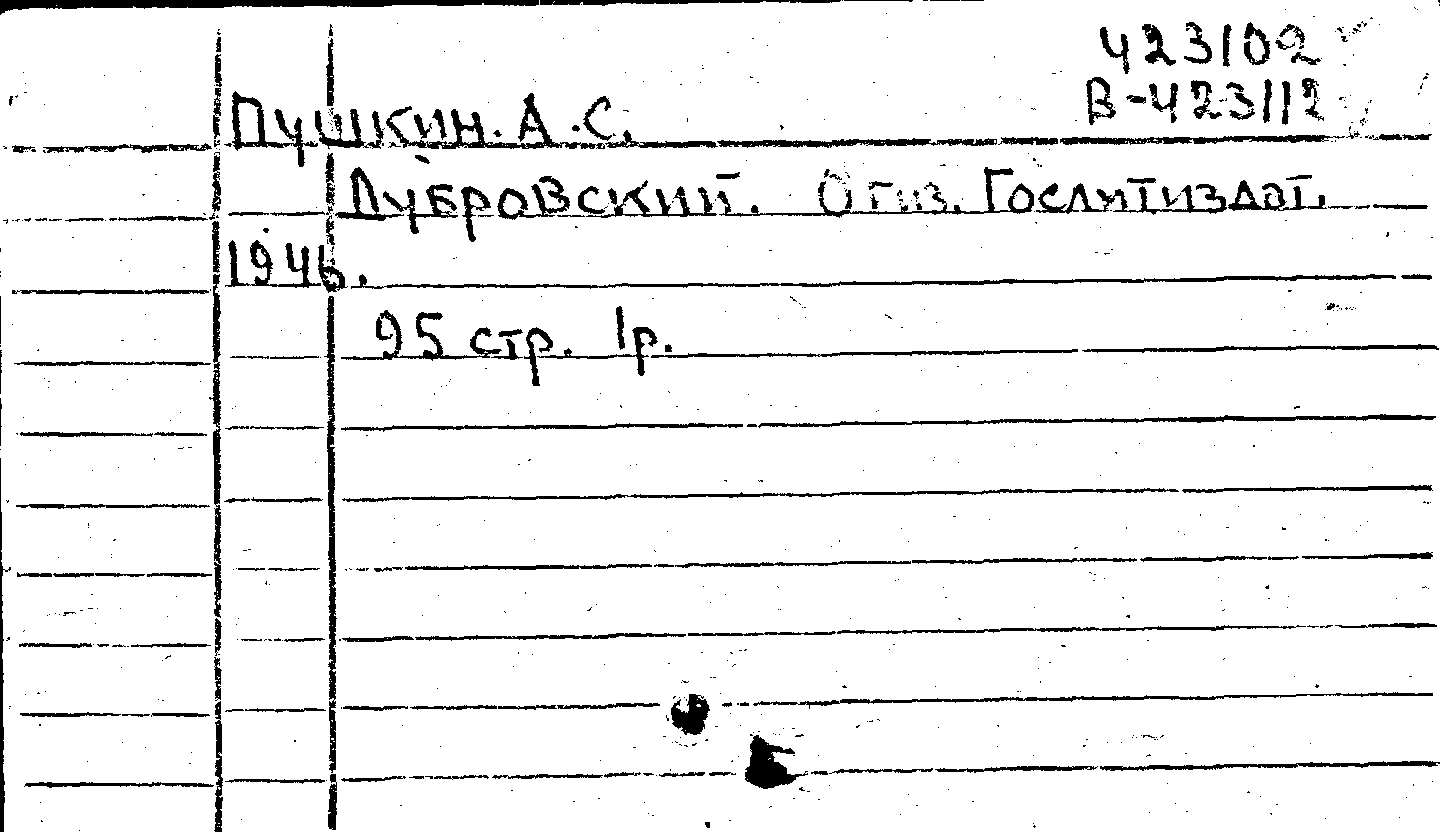 423102
В-423112
Пушкин. А.С.
Дубровский. Огиз. Гослитиздат.
1946.
95 стр. 1р.